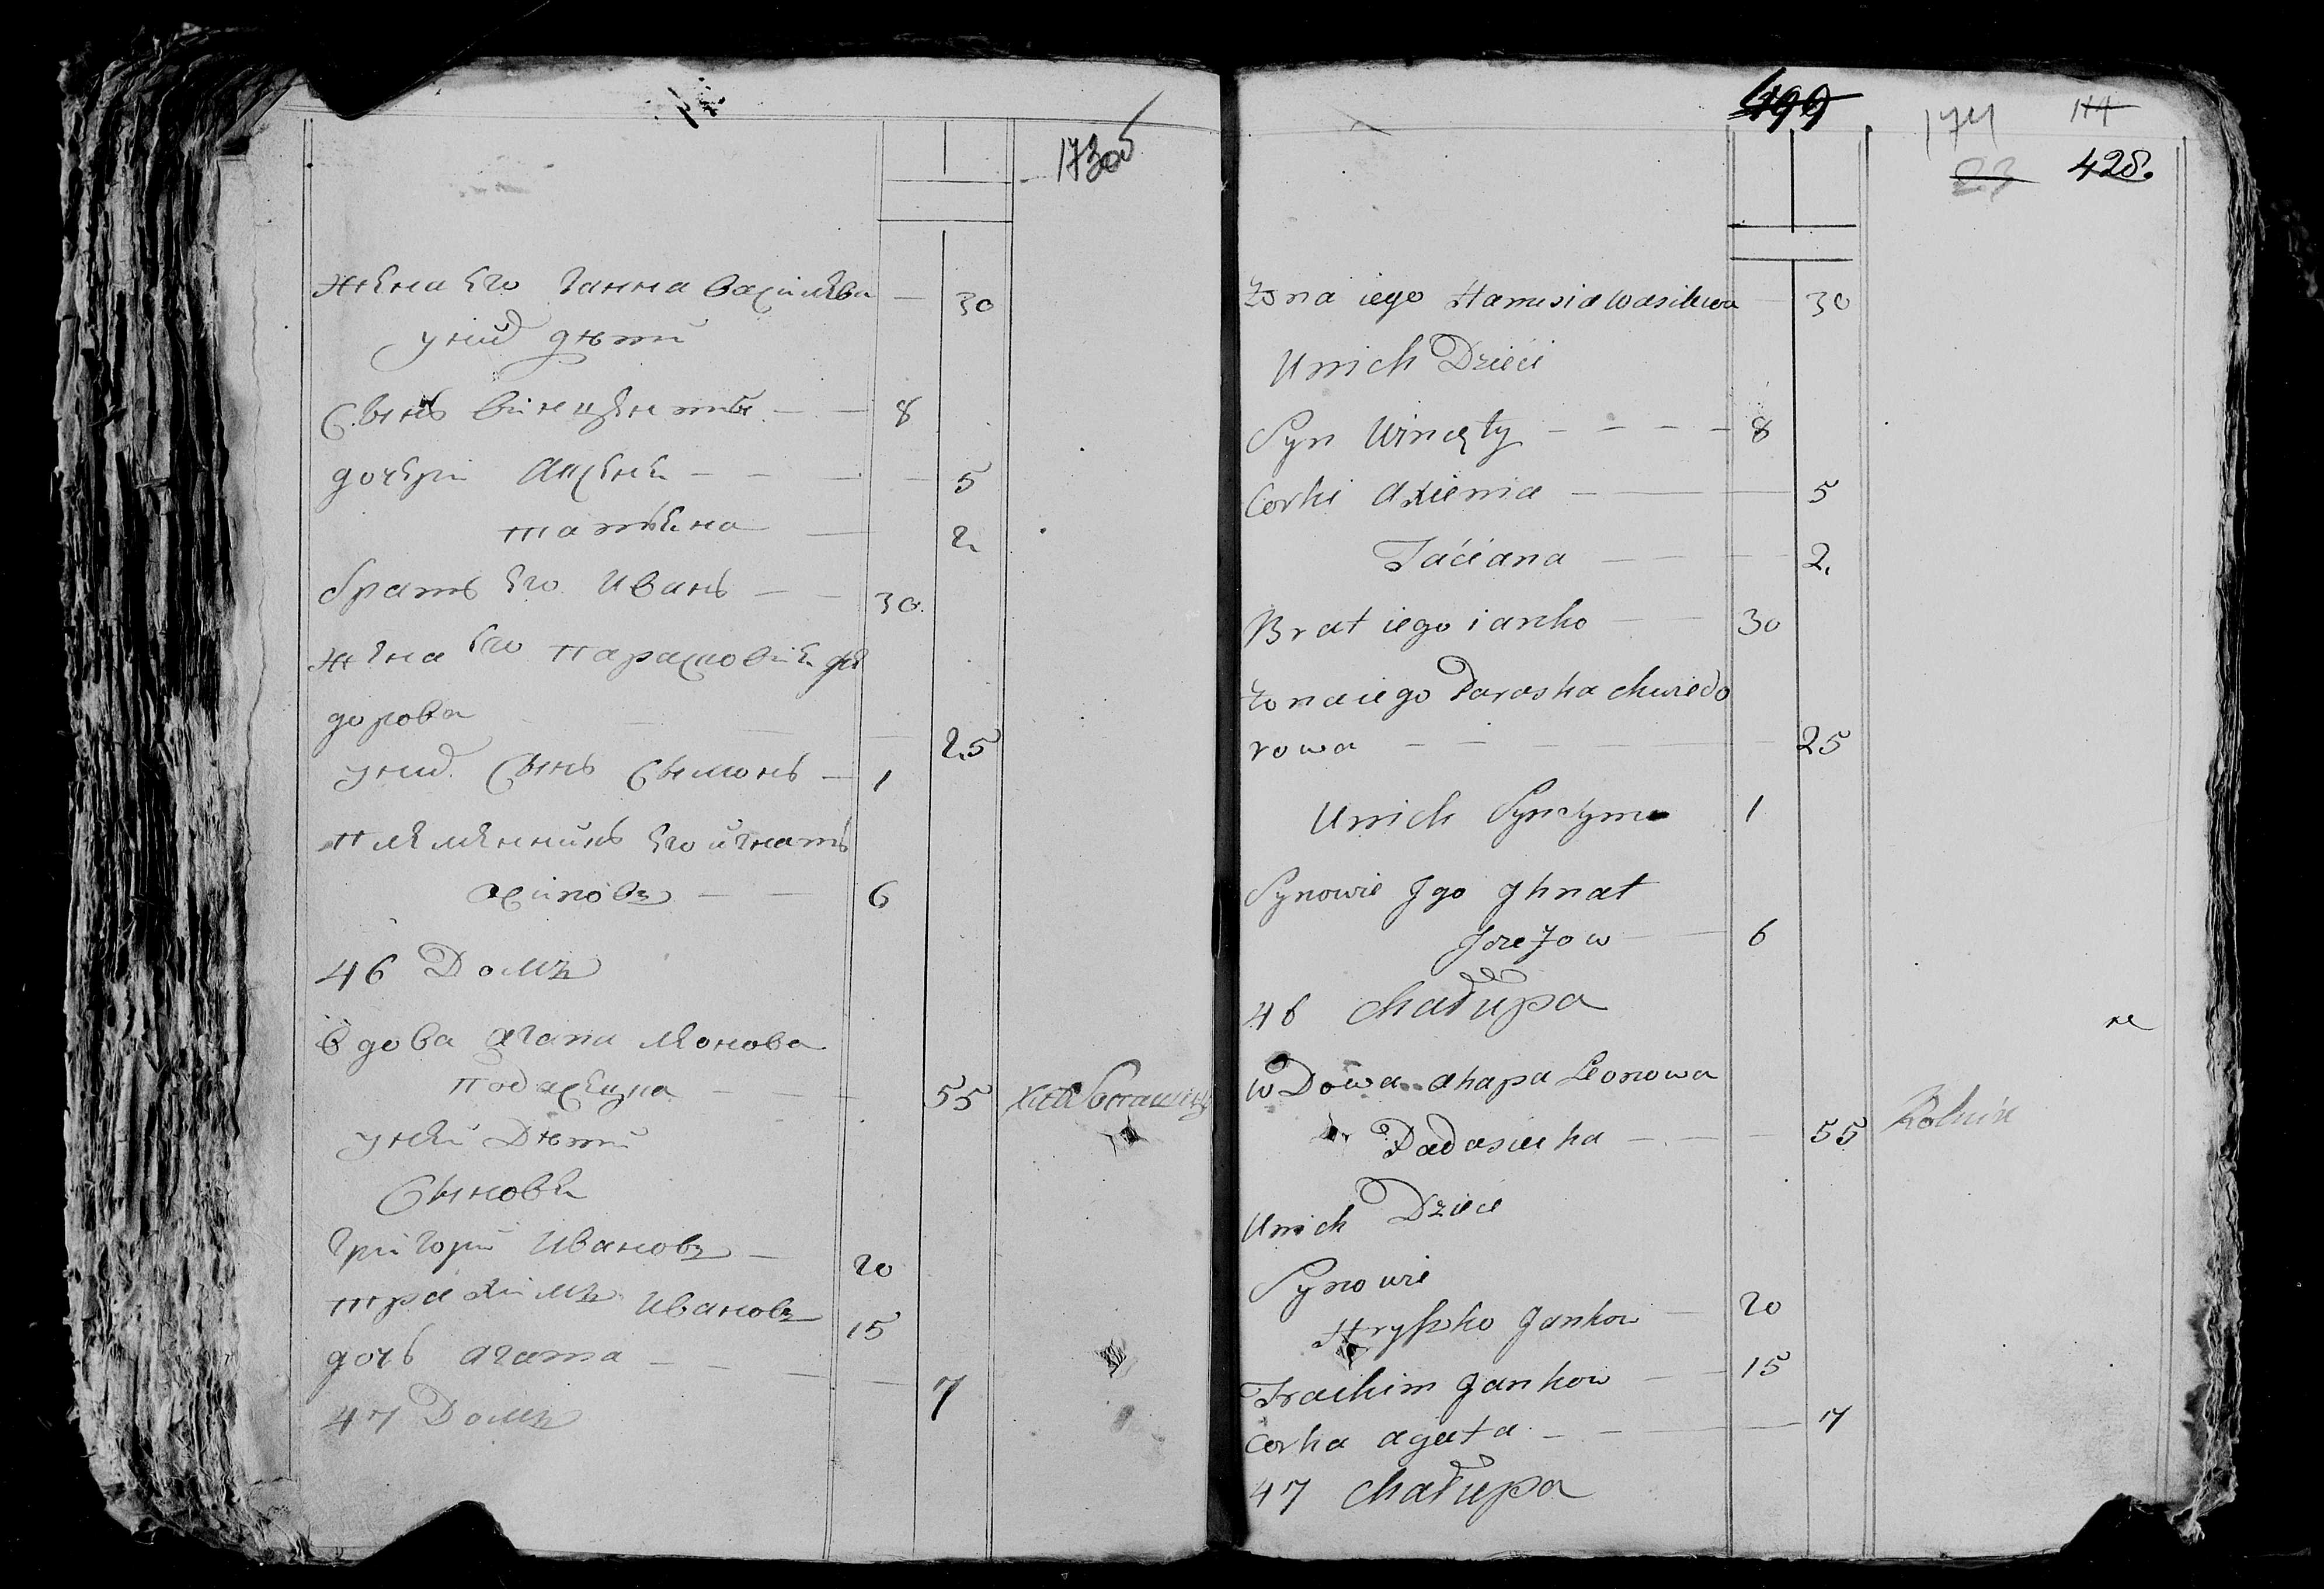 173об
жена его Ганна васильева — 30
у них дети
Сынъ винценты — — 8
дочери Аксеня — — — 5
татьяна — 2
братъ его Иванъ — — 30
жена его парасковия фе
дорова — 25
у них Сынъ Сымонъ — 1
племянникъ его игнатъ
осиповъ — — 6
46 Домъ
вдова агапа леонова
подасецка — — — 55
у ней Дети
Сынове
григорий Ивановъ — 20
трахимъ Ивановъ 15
дочь агата — — 7
47 Домъ
499
174 114
23 428.
Żona iego Hanusia wasilewa — 30
Unich Dzieci
Syn Wincęty — — — — 8
Corki Axienia — — 5
Taciana — — — 2.
Brat iego ianko — — 30
Żona iego Paraska chwiedo
rowa — — — — — 25
Unich Syn Symo 1
Synowie Jgo Jhnat
Jozefow — — 6
46 Chałupa
wDowa ahapa Leonowa
Padasiecka — — — 55 Rolnik
Unich Dzieci
Synowie
Hryszko Jankow — 20
Trachim Jankow — — 15
Corka agata — — — 7
47 Chałupa